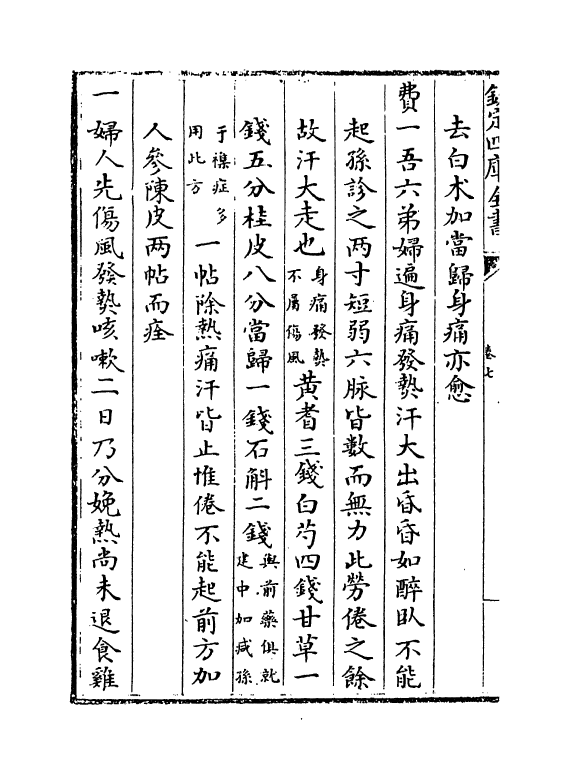 欽定四庫全書
卷七
去白朮加當歸身痛亦愈
費一吾六弟婦遍身痛發𤍠汗大出昏昏如醉卧不能
起孫診之两寸短弱六脉皆數而無力此勞倦之餘
故汗大走也身痛發𤍠不屬傷風黄耆三錢白芍四錢甘草一
錢五分桂皮八分當歸一錢石斛二錢與前藥俱就建中加减孫
于雜症多用此方一帖除熱痛汗皆止惟倦不能起前方加
人參陳皮两帖而痊
一婦人先傷風發𤍠咳嗽二日乃分娩熱尚未退食雞